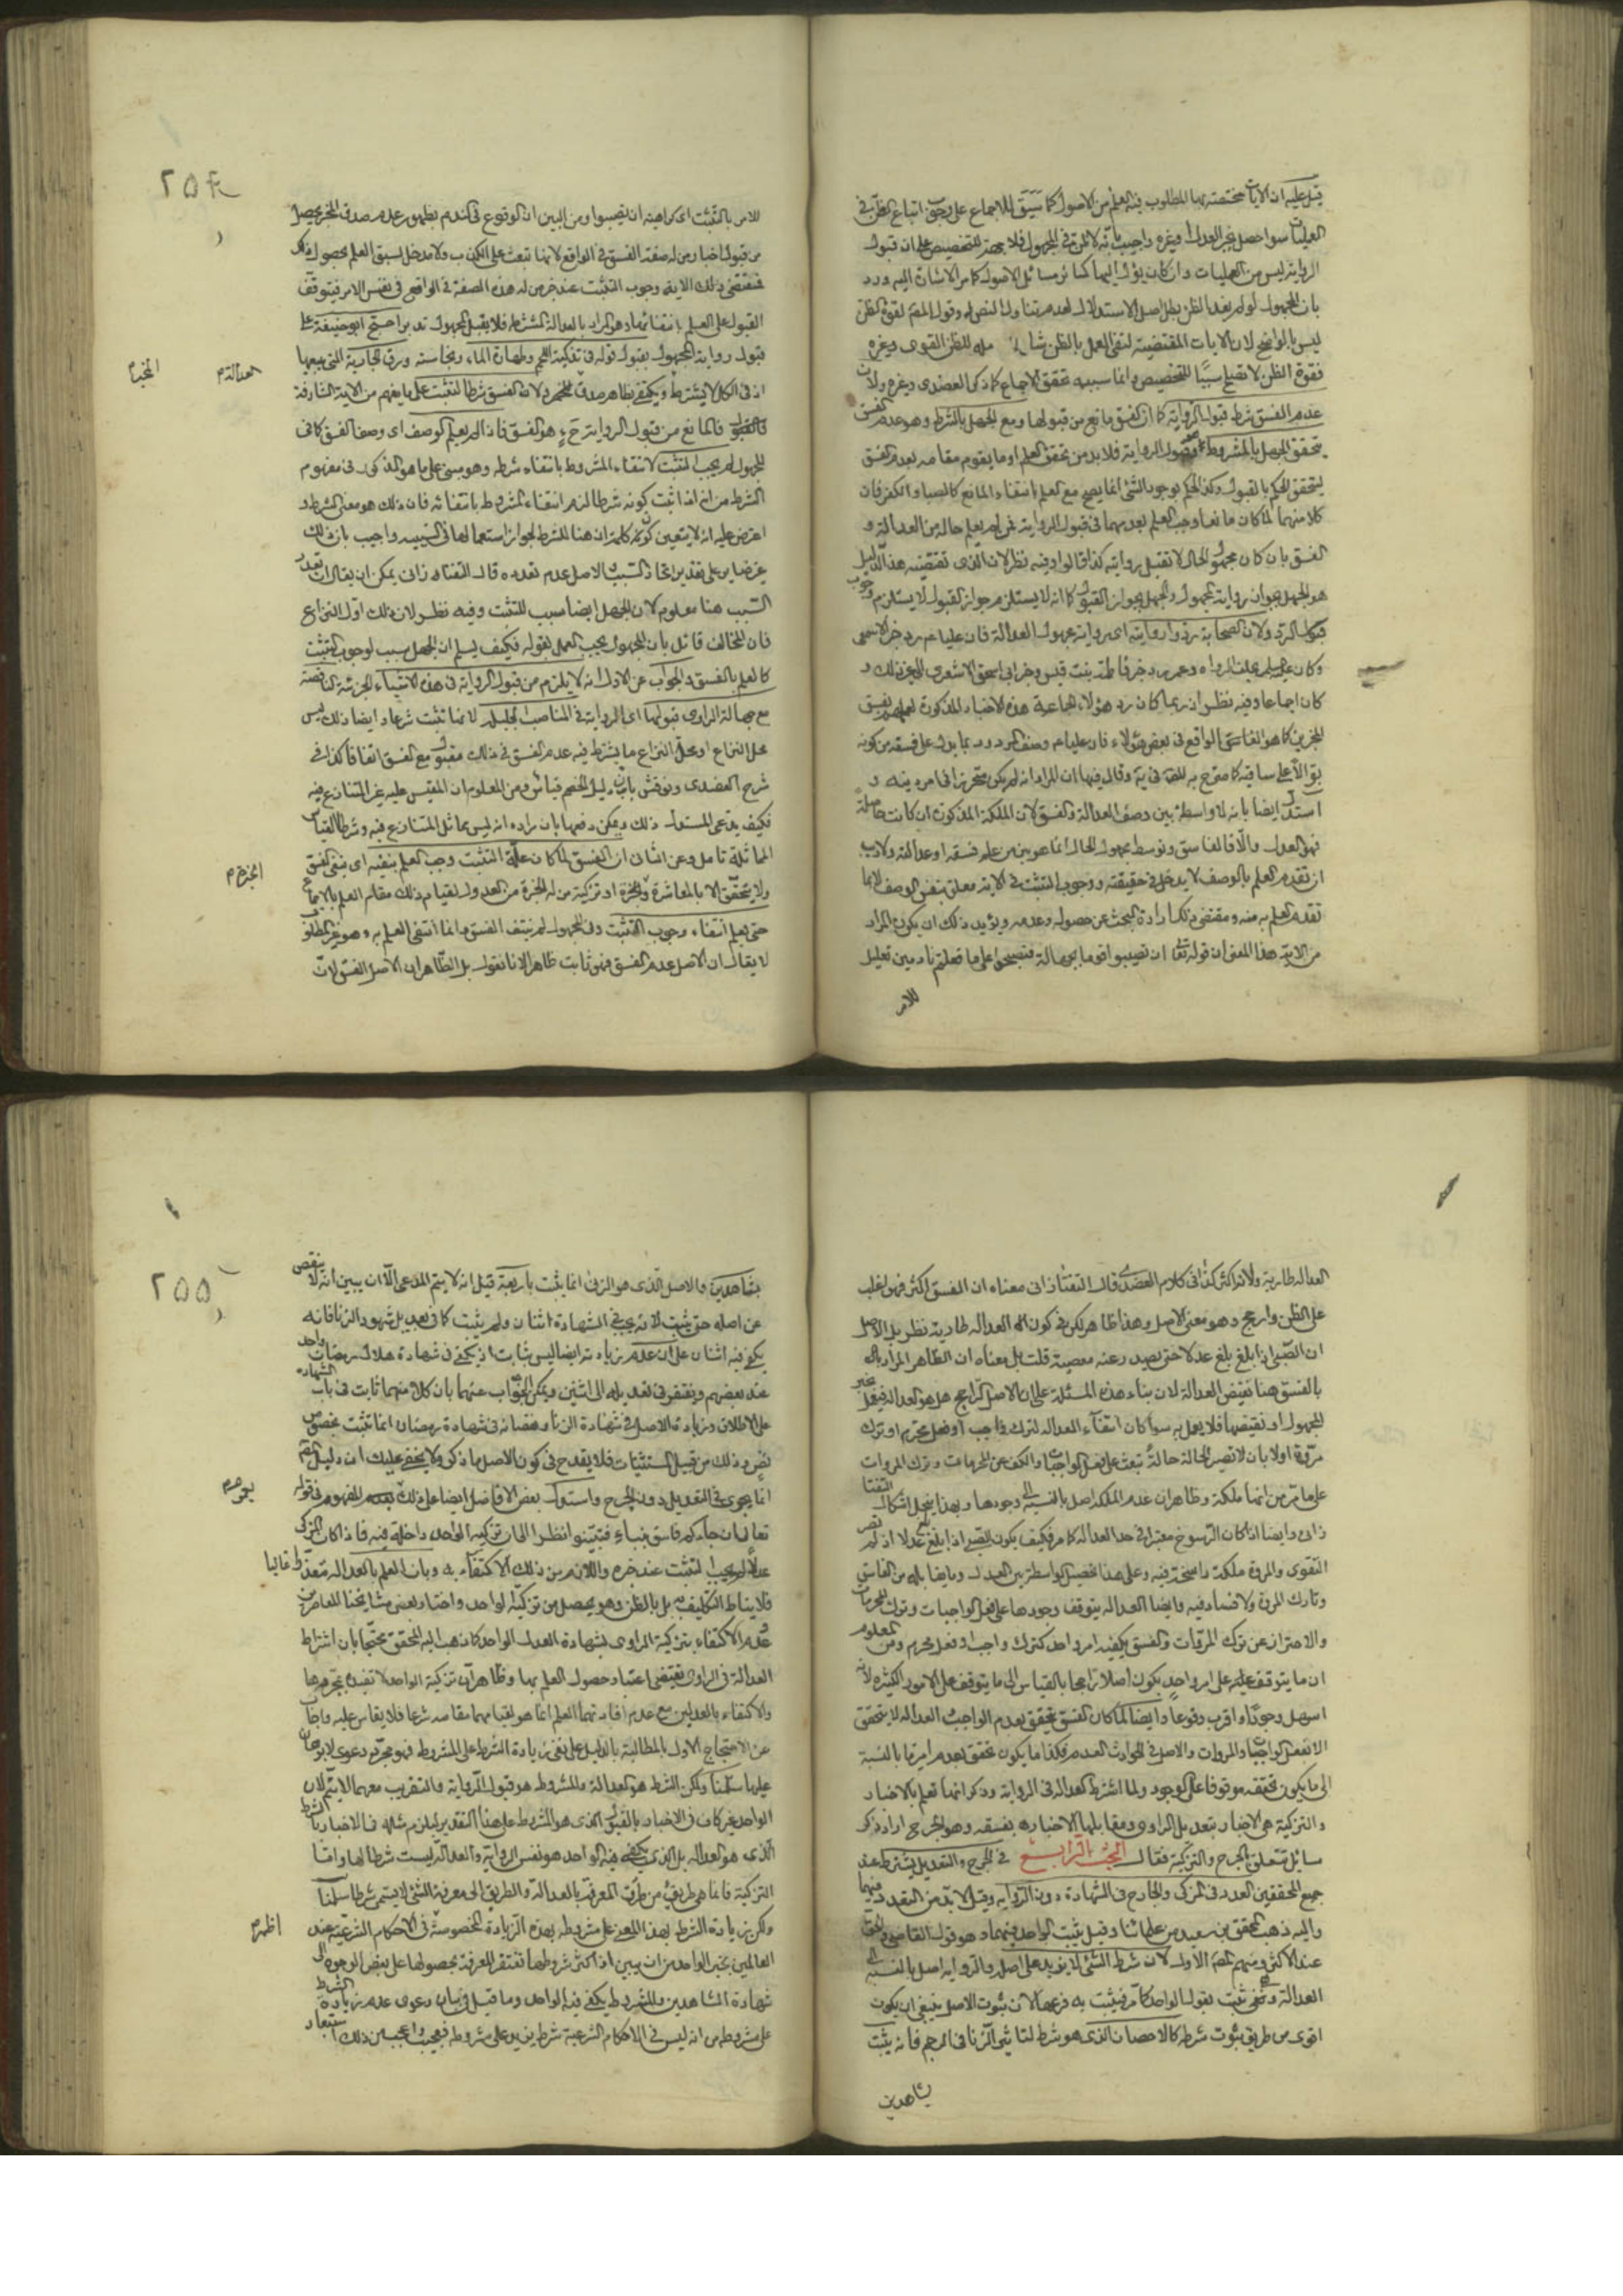 قيل عليه ان الايات مختصة بما المطلوب فيه العلم من الاصول كما سيق للاجماع على وجوب اتباع الظن في
العمليات سواء حصل بخبر العدل او غيره واجيب بانه لا ثمرة في المجهول فلا يحضر للتخصيص على ان قبول
الرواية ليس من العمليات وان كان يؤل اليها كسائر مسائل الاصول كما مر الاشارة اليه ورد
بان المجهول لو لم يفد الظن بطل اصل الاستدلال لعدم تناول النص له وقول المصنف لقوة الظن
ليس بالواضح لان الايات المقتضية لنفى العمل بالظن شاملة للظن القوى وغيره
فقوة الظن لا تصلح سببا للتخصيص وانما سببه تحقق الاجماع كما ذكر العضدى وغيره ولان
عدم الفسق شرط قبول الرواية كما ان الفسق مانع من قبولها ومع الجهل بالشرط وهو عدم الفسق
يتحقق الجهل بالمشروط وهو قبول الرواية فلا بد من تحقق العلم او ما يقوم مقامه بعدم الفسق
ليتحقق الحكم بالقبول وكذا الحكم بوجود الشئ انما يصح مع العلم بانتفاء المانع كالصبا والكفر فان
كلا منهما لما كان مانعا وجب العلم بعدمهما في قبول الرواية فمن لم يعلم حاله من العدالة و
الفسق بان كان مجهول الحال لا تقبل روايته كذا قالوا وفيه نظر لان الذى تقتضيه هذا الدليل
هو الجهل بجواز رواية المجهول والجهل بجواز القبول كما انه لا يستلزم جواز القبول لا يستلزم وجوب
الرد ولان الصحابة ردوا روايته اى رواية مجهول العدالة فان عليا عم رد خبر الاشجعى
وكان عليه السلم يحلف الرواه وعمر رد خبر فاطمة بنت قيس وخبر ابى اسحق الاشعرى الى غير ذلك و
كان اجماعا وفيه نظر اذ ربما كان رد هؤلاء الجماعة هذه الاخبار المذكورة لعلمهم بفسق
المخبرين كما هو الفاسق الواقع في بعض هؤلاء فان عليا عم وصف المردود بما يدل على فسقه من كونه
بوالا على ساقيه كما صرح به المصنف في يه وقال فيها ان المراد انه لم يكن متحرزا في امر دينه و
استدل ايضا بانه لا واسطة بين وصف العدالة والفسق لان الملكة المذكورة ان كانت حاصلة
فهو العدل والا فالفاسق وتوسط مجهول الحال انما هو بين من علم فسقه او عدالته ولا ريب
ان تقدم العلم بالوصف لا يدخل في حقيقته ووجوب التثبت في الاية معلق بنفس الوصف لا بما
تقدم العلم به منه ومقتضى ذلك ارادة البحث عن حصوله وعدمه ويؤيد ذلك ان يكون المراد
من الاية هذا المعنى ان قوله تعا ان تصيبوا قوما بجهالة فتصبحوا على ما فعلتم نادمين تعليل
للامر
٢٥٤
للامر بالتثبت اى كراهية ان تصيبوا ومن البين ان الوقوع في الندم بظهور عدم صدق المخبر يحصل
من قبول اخبار من له صفة الفسق في الواقع لانها تبعث على الكذب ولا مدخل لسبق العلم بحصوله في ذلك
فمقتضى ذلك الاية وجوب التثبت عند خبر من له هذه الصفة في الواقع في نفس الامر فيتوقف
القبول على العلم بانتفائها وهو المراد بالعدالة المشترطة فلا يقبل المجهول تدبر احتج ابو حنيفة على
قبول رواية المجهول بقبول قوله في تذكية اللحم وطهارة الماء ونجاسته ورق الجارية التى يبيعها
العدالة م
المخبر م
اذ في الكل لا يشترط ويكتفى بظاهر صدق المخبر ولان الفسق شرط التثبت على ما يفهم من الاية الشارفة
فالمانع من قبول الرواية ح هو الفسق فاذا لم يعلم الوصف اى وصف الفسق كما في
المجهول لم يجب التثبت لانتفاء المشروط بانتفاء شرطه وهو مبنى على ما هو المذكور في مفهوم
الشرط من انه اذا ثبت كونه شرطا لزم انتفاء المشروط بانتفائه فان ذلك هو معنى الشرط و
اعترض عليه انه لا يتعين كون كلمة ان هنا للشرط لجواز استعمالها في السببية واجيب بان ذلك
غير ضاير على تقدير اتحاد السبب والاصل عدم تعدده قال التفتازانى يمكن ان يقال ان تعدد
السبب هنا معلوم لان الجهل ايضا سبب للتثبت وفيه نظر لان ذلك اول النزاع
فان المخالف قائل بان المجهول يجب العمل بقوله فكيف يسلم ان الجهل سبب لوجوب التثبت
كالعلم بالفسق والجواب عن الاول انه لا يلزم من قبول الرواية في هذه الاشياء الجزئية الناقصة
مع جهالة الراوى قبولها اى الرواية في المناصب الجليلة لانها تثبت شرعا وايضا ذلك ليس
محل النزاع اذ محل النزاع ما يشترط فيه عدم الفسق في ذلك مقبول مع الفسق اتفاقا كذا في
شرح العضدى ونوقش بان دليل الخصم قياس ومن المعلوم ان المقيس عليه غير المتنازع فيه
فكيف يدعى المستدل ذلك ويمكن دفعها بان مراده انه ليس مماثل المتنازع فيه وشرط القياس
المماثلة تامل وعن الثانى ان الفسق لما كان علة التثبت وجب العلم بنفيه اى بنفى الفسق
المخبر م
ولا يتحقق الا بالمعاشرة والخبرة او تزكية من له الخبرة من العدول لقيام ذلك مقام العلم بالاجماع
حتى يعلم انتفاء وجوب التثبت وفي المجهول لم ينتف الفسق وانما انتفى العلم به وهو غير المطلوب
لا يقال ان الاصل عدم الفسق فهو ثابت ظاهرا لانا نقول بل الظاهر ان الاصل الفسق لان
العداله طارية ولانه اكثر كذا في كلام العضدى قال التفتازانى معناه ان الفسق اكثر فهو اغلب
على الظن وارجح وهو معنى الاصل وهذا ظاهر لكن في كون العدالة طارية نظر بل الاصل
ان الصبى اذا بلغ بلغ عدلا حتى يصدر عنه معصية قلت بل معناه ان الظاهر المراد
بالفسق هنا نقيض العدالة لان بناء هذه المسئلة على ان الاصل الراجح هل هو العدالة فيقبل خبر
المجهول او نقيضها فلا يعمل به سواء كان انتفاء العداله لترك واجب او فعل محرم او ترك
مروة اولا بان لا تصير الحالة حالة تبعث على فعل الواجبات والكف عن المحرمات وترك المروات
على ما مر من انها ملكة وظاهر ان عدم الملكة اصل بالنسبة الى وجودها وبهذا ينحل اشكال التفتا
زانى وايضا اذا كان الرسوخ معتبرا في حد العداله كما مر فكيف يكون الصبى اذا بلغ بلغ عدلا اذ لم تصر
التقوى والمروة ملكة راسخة فيه وعلى هذا تحصيل الواسطة بين العدل وما يقابله من الفاسق
وتارك المروة ولا فساد فيه وايضا العداله يتوقف وجودها على فعل الواجبات وترك المحرمات
والاحتراز عن ترك المروات والفسق يكفيه امر واحد كترك واجب او فعل محرم ومن المعلوم
ان ما يتوقف عليه على امر واحد يكون اصلا راجحا بالقياس الى ما يتوقف على الامور الكثيرة لانه
اسهل وجودا واقرب وقوعا وايضا لما كان الفسق يتحقق بعدم الواجب والعداله لا يتحقق
الا بفعل الواجبات والمروات والاصل في الحوادث العدم فكذا ما يكون تحقق بعدم امر ما بالنسبة
الى ما يكون تحققه موقوفا على الوجود ولما اشترط العداله في الرواية وذكر انها تعلم بالاختبار
والتزكية هى الاخبار بتعديل الراوى ومقابلها الاخبار بفسقه وهو الجرح اراد ذكر
مسائل تتعلق بالجرح والتزكية فقال البحث الرابع في الجرح والتعديل يشترط عند
جميع المحققين العدد في المزكى والجارح في الشهادة دون الرواية وقيل لا بد من التعدد فيهما
واليه ذهب المحقق بن سعيد من علمائنا وقيل يثبت الواحد فيهما وهو قول القاضى والحق
عند الاكثر ومنهم المصنف الاول لان شرط الشئ لا يزيد على اصله والرواية اصل بالنسبة الى
العدالة وهى تثبت بقول الواحد كما مر فيثبت به فرعها لان ثبوت الاصل ينبغى ان يكون
اقوى من طريق ثبوت شرطه كالاحصان الذى هو شرط لتاثير الزنا في الرجم فانه يثبت
بشاهدين
٢٥٥
بشاهدين والاصل الذى هو الزنى انما يثبت باربعة قيل انه لا يتم المدعى الا ان يبين انه لا ينقص
عن اصله حتى يثبت لانه يجب في الشهادة اثنان ولم يثبت كما في تعديل شهود الزنا فانه
يكفى فيه اثنان على ان عدم زيادته ايضا ليس ثابت اذ يكفى في شهادة هلال رمضان واحد
عند بعضهم ويفتقر في تعديله الى اثنين ويمكن الجواب عنهما بان كلا منهما ثابت في باب الشهاده
على الاطلاق وزيادة الاصل في شهادة الزنا ونقصانه في شهادة رمضان انما تثبت بخصوص
نص وذلك من قبيل المستثنيات فلا يقدح في كون الاصل ما ذكر ولا يخفى عليك ان دليل المصنف
انما يجرى في التعديل دون الجرح واستدل بعض الافاضل ايضا على ذلك المفهوم في قوله
بعموم م
تعا ان جاءكم فاسق بنباء فتبينوا نظرا الى ان تزكية الواحد داخلة فيه فاذا كان المزكى
عدلا لم يجب التثبت عند خبره واللازم من ذلك الاكتفاء به وبان العلم بالعدالة متعذر غالبا
فلا يناط التكليف به بل بالظن وهو يحصل من تزكية الواحد واختار بعض مشايخنا المعاصرين
عدم الاكتفاء بتزكية الراوى بشهادة العدل الواحد كما ذهب اليه المحقق محتجا بان اشتراط
العدالة في الراوى تقتضى اعتبار حصول العلم بها وظاهر ان تزكية الواحد لا تفيده بمجردها
والاكتفاء بالعدلين مع عدم افادتهما العلم انما هو لقيامهما مقامه شرعا فلا يقاس عليه واجاب
عن الاحتجاج الاول بالمطالبة بالدليل على نفى زيادة الشرط على المشروط فهو مجرد دعوى لا برهان
عليها سلمنا ولكن الشرط هو العدالة والمشروط هو قبول الرواية والتقريب معهما لا يتم لان
الواحد غير كاف في الاخبار بالقبول الذى هو المشروط على هذا التقدير ليلزم مثله في الاخبار بالشرط
الذى هو العداله بل الذى يكفى فيه الواحد هو نفس الرواية والعدالة ليست شرطا لها واما
التزكية فانما هى طريق من طرق المعرفة بالعدالة والطريق الى معرفة الشئ لا يسمى شرطا سلمنا
ولكن زيادة الشرط بهذا المعنى على مشروطه بهذه الزيادة المخصوصة في الاحكام الشرعية عند
اظهر م
العالمين بخبر الواحد من ان يبين اذ اكثر شروطها تفتقر المعرفة بحصولها على بعض الوجوه الى
شهادة الشاهدين والمشروط يكفى فيه الواحد وما قيل في بيان دعوى عدم زيادة الشرط
على مشروطه من انه ليس في الاحكام الشرعية شرط يزيد على مشروطه فعجيب واعجب من ذلك استبعاد